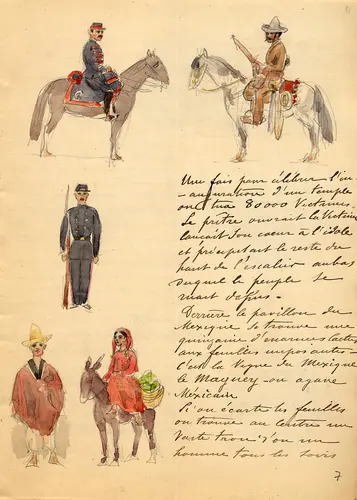 Une fois pour célébrer l'in-
auguration d'un temple
on tua 80 000 Victimes.
Le prêtre ouvrait la Victime
lançait son coeur à l'idole
et précipitait le reste du
haut de l'escalier au bas
duquel le peuple se
ruait dessus.
Derrière le pavillon du
Mexique se trouve une
quinzaine d'énormes cactus
aux feuilles imposantes.
C'est la Vigne du Mexique
le Maguey ou agave
Mexicain
Si on écarte les feuilles
on trouve au centre un
vaste trou d'où un
homme tous les soirs
7